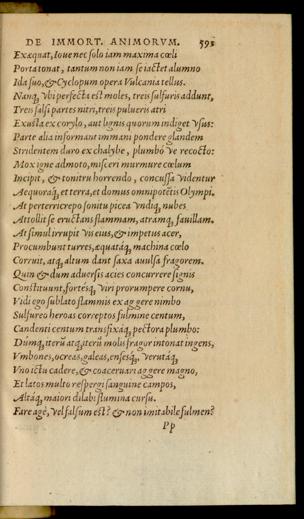 DE IMMORT. ANIMORVM. 593
Exæquat, Ioue nec solo iam maxima cœli
Porta tonat, tantum non iam se iactet alumno
Ida suo, & Cyclopum opera Vulcania tellus.
Nanq, vbi perfecta est moles, treis sulfuris addunt,
Treis salsi partes nitri, treis pulueris atri
Exusta ex corylo, aut lignis quorum indiget vsus:
Parte alia informant immani pondere glandem
Stridentem duro ex chalybe, plumbó ve recocto:
Mox igne admoto, misceri murmure cœlum
Incipit, & tonitru horrendo, concussa videntur
Aequoráq, et terra, et domus omnipotētis Olympi.
At perterricrepo sonitu picea vndiq, nubes
Attollit se eructans flammam, atramq, fauillam.
At simul irrupit vis eius, & impetus acer,
Procumbunt turres, æquatáq, machina cœlo
Corruit, atq, altum dant saxa auulsa fragorem.
Quin & dum aduersis acies concurrere signis
Constituunt, fortésq, viri prorumpere cornu,
Vidi ego sublato flammis ex aggere nimbo
Sulfureo heroas correptos fulmine centum,
Candenti centum transfixáq, pectora plumbo:
Dúmq, iterū atq, iterū molis fragor intonat ingens,
Vmbones, ocreas, galeas, ensesq́, verutáq,
Vno ictu cadere, & coaceruari aggere magno,
Et latos multo respergi sanguine campos,
Altáq, maiori dilabi flumina cursu.
Fare age, vel falsum est? & non imitabile fulmen?
Pp